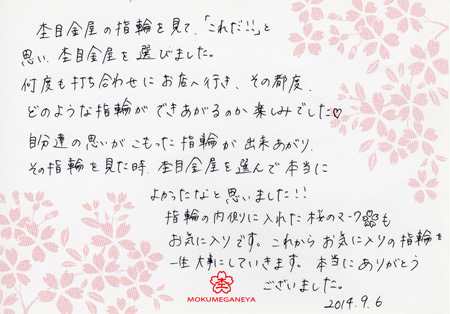 杢目金屋の指輪を見て、「これだ!!」と
思い、杢目金屋を選びました。
何度も打ち合わせにお店へ行き、その都度、
どのような指輪ができあがるのか楽しみでした♡
自分達の思いがこもった指輪が出来あがり、
その指輪を見た時、杢目金屋を選んで本当に
よかったなと思いました!!
指輪の内側に入れた桜のマーク🌸も
お気に入りです。これからお気に入りの指輪を
一生大事にしていきます。本当にありがとう
ございました。
MOKUMEGANEYA
2014.9.6